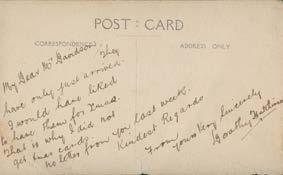 POST CARD
CORRESPONDENCE
ADDRESS ONLY
My Dear Mr Davidson, They
have only just arrived.
I would have liked
to have them for Xmas.
That is why I did not
get Xmas card
no letter from you last week.
Kindest Regards
From yours Very Sincerely
Dorothy